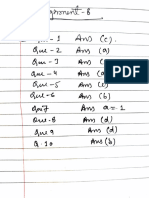 Assignment - 8
Que - 1 Ans (c).
Que - 2 Ans (a)
Que - 3 Ans (c)
Que - 4 Ans (a)
Que - 5 Ans (c)
Que - 6 Ans (b)
Que 7 Ans a = 1
Que - 8 Ans (d)
Que 9 Ans (d)
Q. 10 Ans (b)